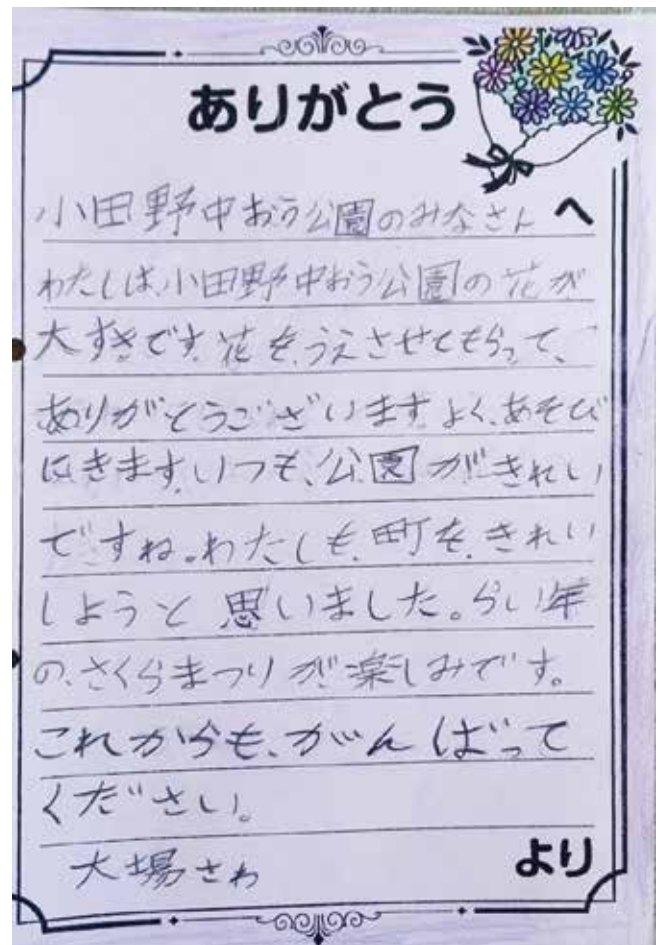 ありがとう
小田野中おう公園のみなさん へ
わたしは、小田野中おう公園の花が
大すきです。花を、うえさせてもらって、
ありがとうございます。よく、あそび
にきます。いつも、公園がきれい
ですね。わたしも、町を、きれい
しようと思いました。らい年
の、さくらまつりが楽しみです。
これからも、がんばって
ください。
大場さわ より